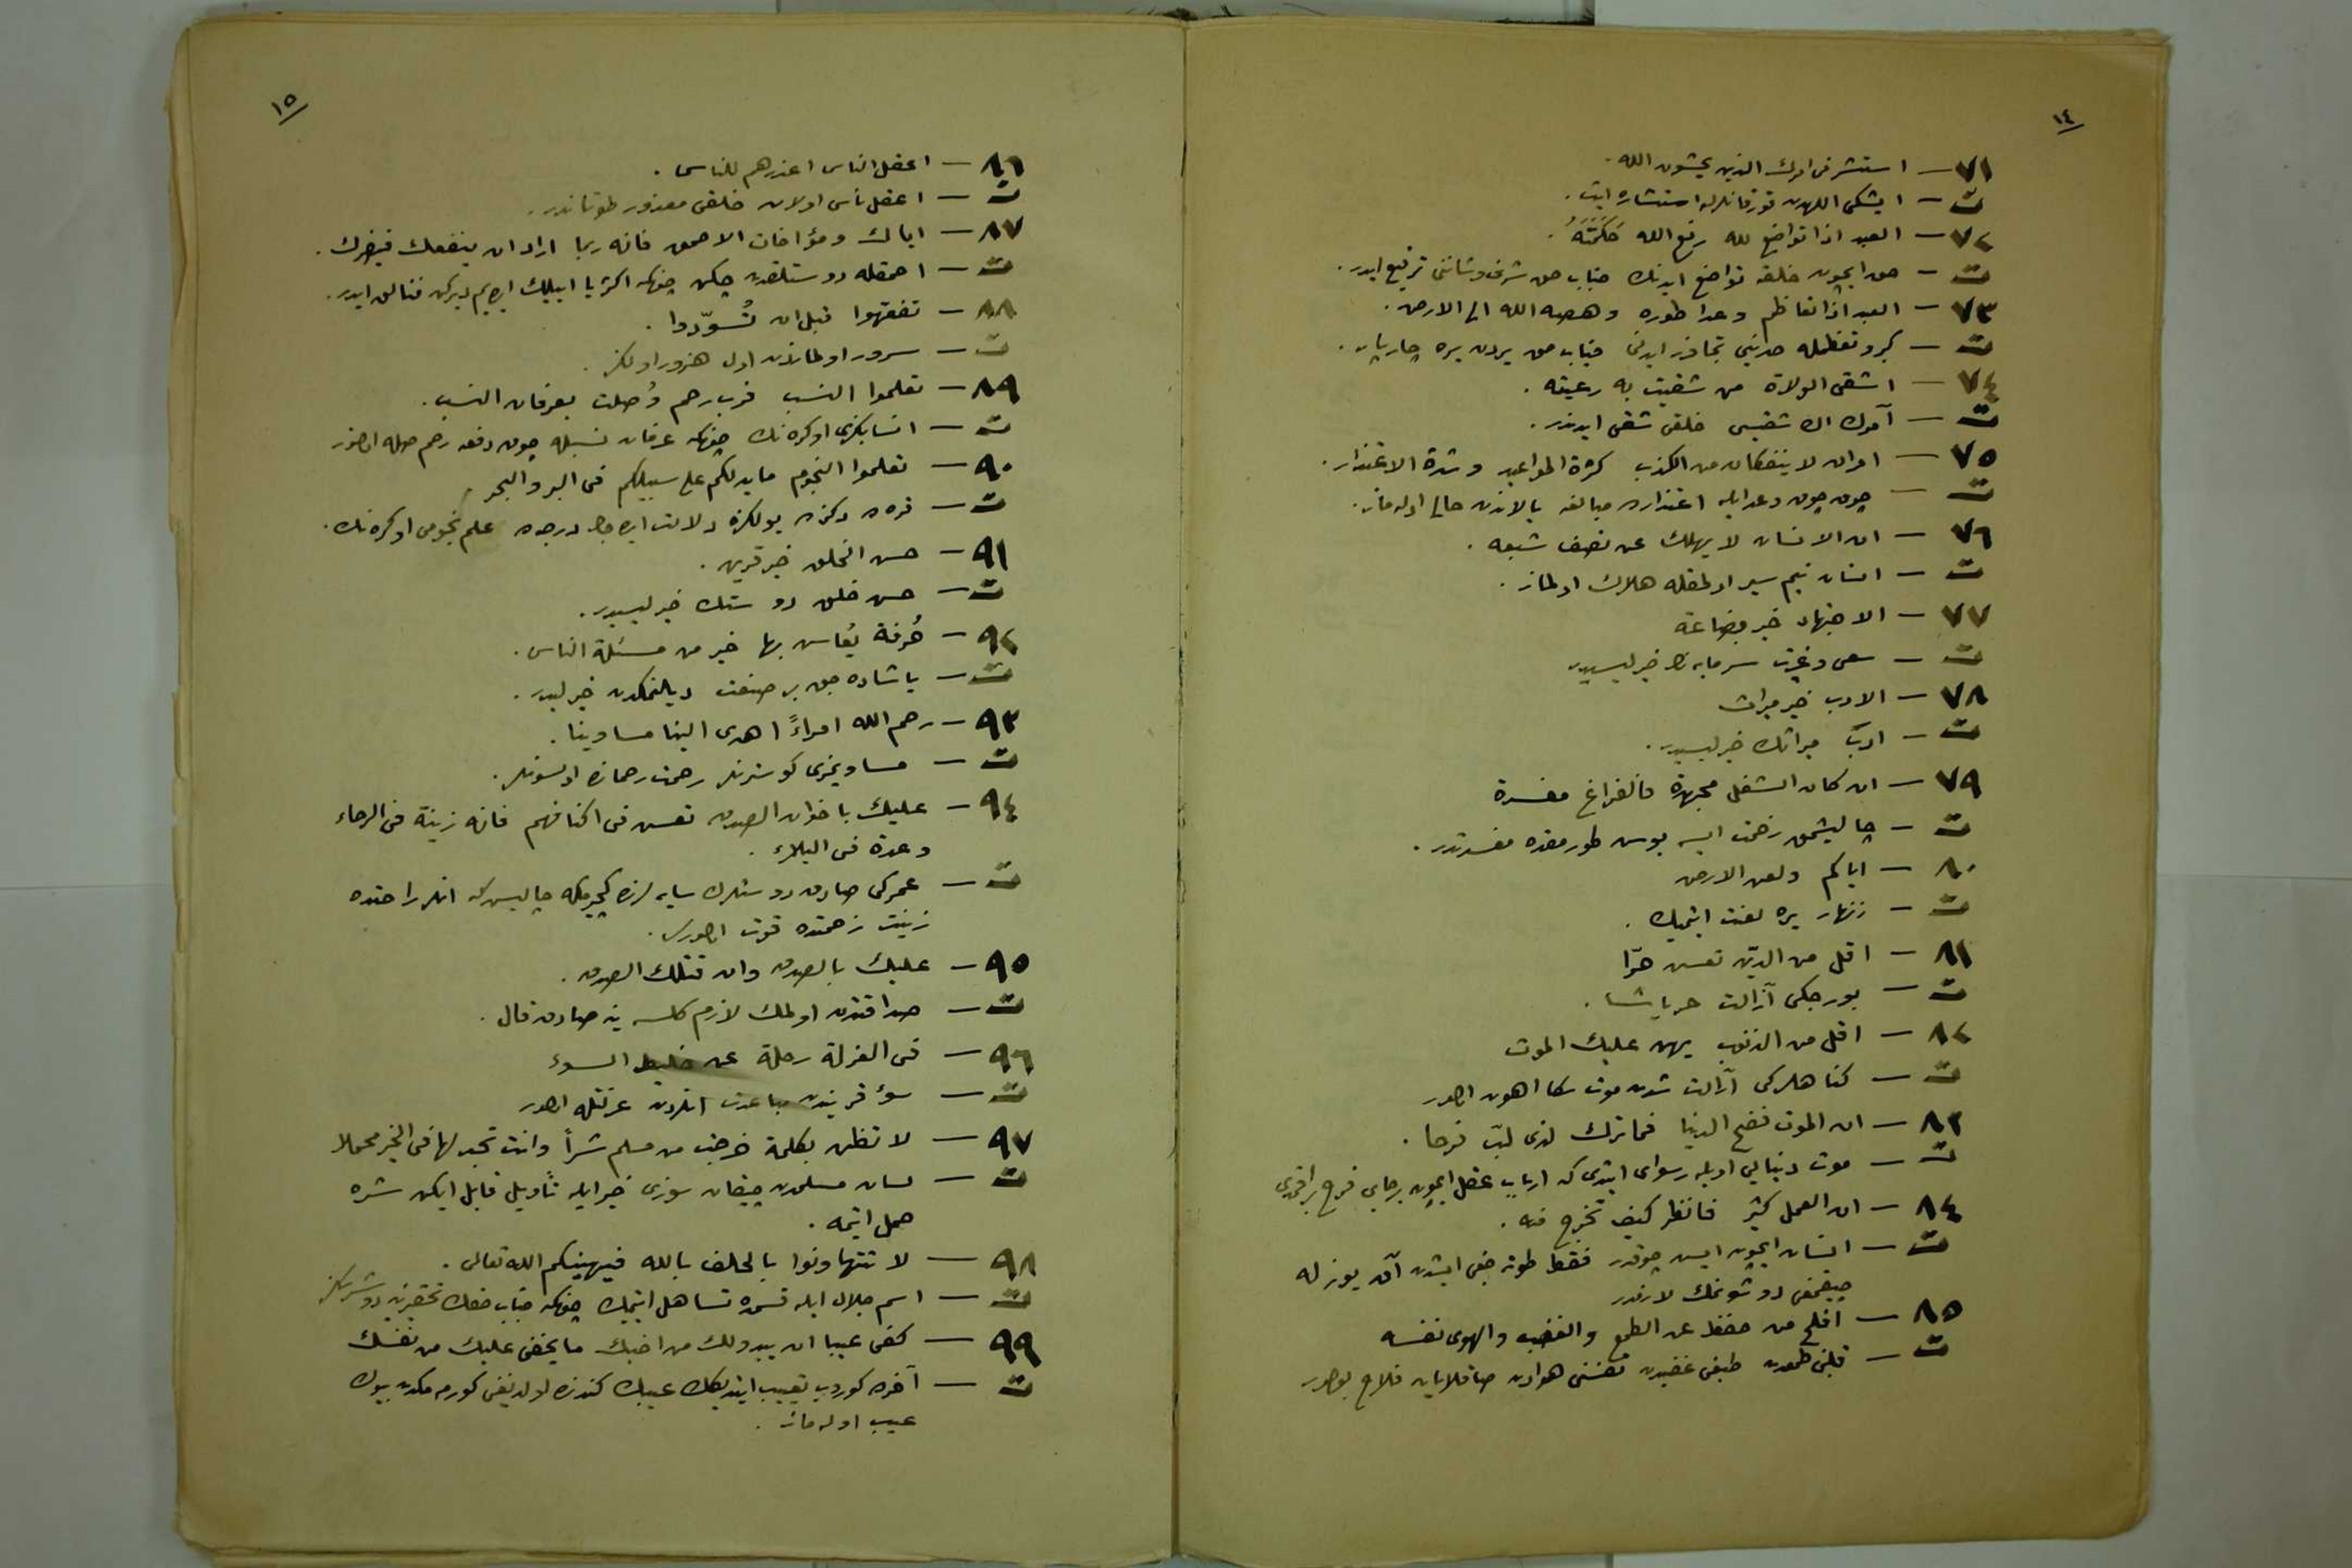 ١٤
٧١ — استشر فى امرك الذين يخشون الله .
ت — ايشكى اللهدن قورقانلرله استشاره ايت .
٧٢ — العبد اذا تواضع لله رفع الله حَكَمَتَهُ .
ت — حق ايچون خلقه تواضع ايدنك جناب حق شرف وشاننى ترفيع ايدر .
٧٣ — العبد اذا تعاظم وعدا طوره وهصه الله الى الارض .
ت — كبر وتعظمله حدينى تجاوز ايدنى جناب حق يردن يره چارپار .
٧٤ — اشقى الولاة من شقيت به رعيته .
ت — آمرك اك شقيسى خلقى شقى ايدندر .
٧٥ — امران لا ينفكان من الكذب كثرة المواعيد وشدة الاعتذار .
ت — چوق چوق وعد ايله اعتذارده مبالغه يالاندن خالى اوله ماز .
٧٦ — ان الانسان لا يهلك عن نصف شبعه .
ت — انسان نيم سير اولمقله هلاك اولماز .
٧٧ — الاجتهاد خير بضاعة
ت — سعى وغيرت سرمايه نك خيرليسيدر
٧٨ — الادب خير ميراث
ت — ادب ميراثك خيرليسيدر .
٧٩ — ان كان الشغل مجهدة فالفراغ مفسدة
ت — چاليشمق زحمت ايسه بوش طورمقده مفسدتدر .
٨٠ — اياكم ولعن الارض
ت — زنهار يره لعنت ايتميك .
٨١ — اقل من الدين تعش حرّا
ت — بورجكى آزالت حر ياشا .
٨٢ — اقل من الذنوب يهن عليك الموت
ت — كناهلركى آزالت شدت موت سكا اهون اولور
٨٣ — ان الموت فضح الدنيا فما ترك لذى لبّ فرحا .
ت — موت دنيايى اويله رسواى ايتدى كه ارباب عقل ايچون برجاى فرح براقمدى
٨٤ — ان العمل كثير فانظر كيف تخرج منه .
ت — انسان ايچون ايش چوقدر فقط طوتديغى ايشدن آق يوز له
چيقمغى دوشونمك لازمدر
٨٥ — افلح من حفظ عن الطمع والغضب والهوى نفسه
ت — قلبنى طمعدن طبعنى غضبدن نفسنى هوادن صاقلايان فلاح بولور
١٥
٨٦ — اعقل الناس اعذرهم للناس .
ت — اعقل ناس اولان خلقى معذور طوتاندر .
٨٧ — اياك ومؤاخات الاحمق فانه ربما اراد ان ينفعك فيضرك .
ت — احمقله دوستلقدن چكن چونكه اكثريا اييلك ايده يم ديركن فنالق ايدر .
٨٨ — تفقهوا قبل ان تُسوّدوا .
ت — سرور اولمازدن اول هنرور اولكز .
٨٩ — تعلموا النسب فرب رحم وُصلت بعرفان النسب .
ت — انسابكزى اوكره نك چونكه عرفان نسبله چوق دفعه رحم صله اولنور
٩٠ — تعلموا النجوم ما يدلكم على سبيلكم فى البر والبحر .
ت — قره ده دكزده يولكزه دلالت ايده جك درجه ده علم نجومى اوكره نك .
٩١ — حسن الخلق خير قرين .
ت — حسن خلق دوستك خيرليسيدر .
٩٢ — حُرفة يُعاش بها خير من مسئلة الناس .
ت — ياشاده جق بر صنعت ديلنمكدن خيرليدر .
٩٣ — رحم الله امراءً اهدى الينا مساوينا .
ت — مساويمزى كوسترنلر رحمت رحمانه اولسونلر .
٩٤ — عليك باخوان الصدق تعش فى اكنافهم فانه زينة فى الرخاء
وعدة فى البلاء .
ت — عمركى صادق دوستلرك سايه لرنده كچيرمكه چاليش كه انلر راحتده
زينت زحمتده قوت اولور .
٩٥ — عليك بالصدق وان قتلك الصدق .
ت — صداقتدن اولمك لازم كلسه ينه صادق قال .
٩٦ — فى العزلة راحة عن خليط السوء
ت — سؤ قريندن مباعدت انلردن عزلتله اولور
٩٧ — لا تظن بكلمة خرجت من مسلم شراً وانت تجد لها فى الخير محملا
ت — لسان مسلمدن چيقان سوزى خير ايله تأويل قابل ايكن شره
حمل ايتمه .
٩٨ — لا تتهاونوا بالحلف بالله فيهينكم الله تعالى .
ت — اسم جلال ايله قسمده تساهل ايتميك چونكه جناب حقك تحقيرينه دوشرسكز
٩٩ — كفى عيبا ان يبدو لك من اخيك ما يخفى عليك من نفسك
ت — آخرده كوروب تعييب ايتديكك عيبك كندكده اولديغنى كورمه مكدن بيوك
عيب اوله ماز .